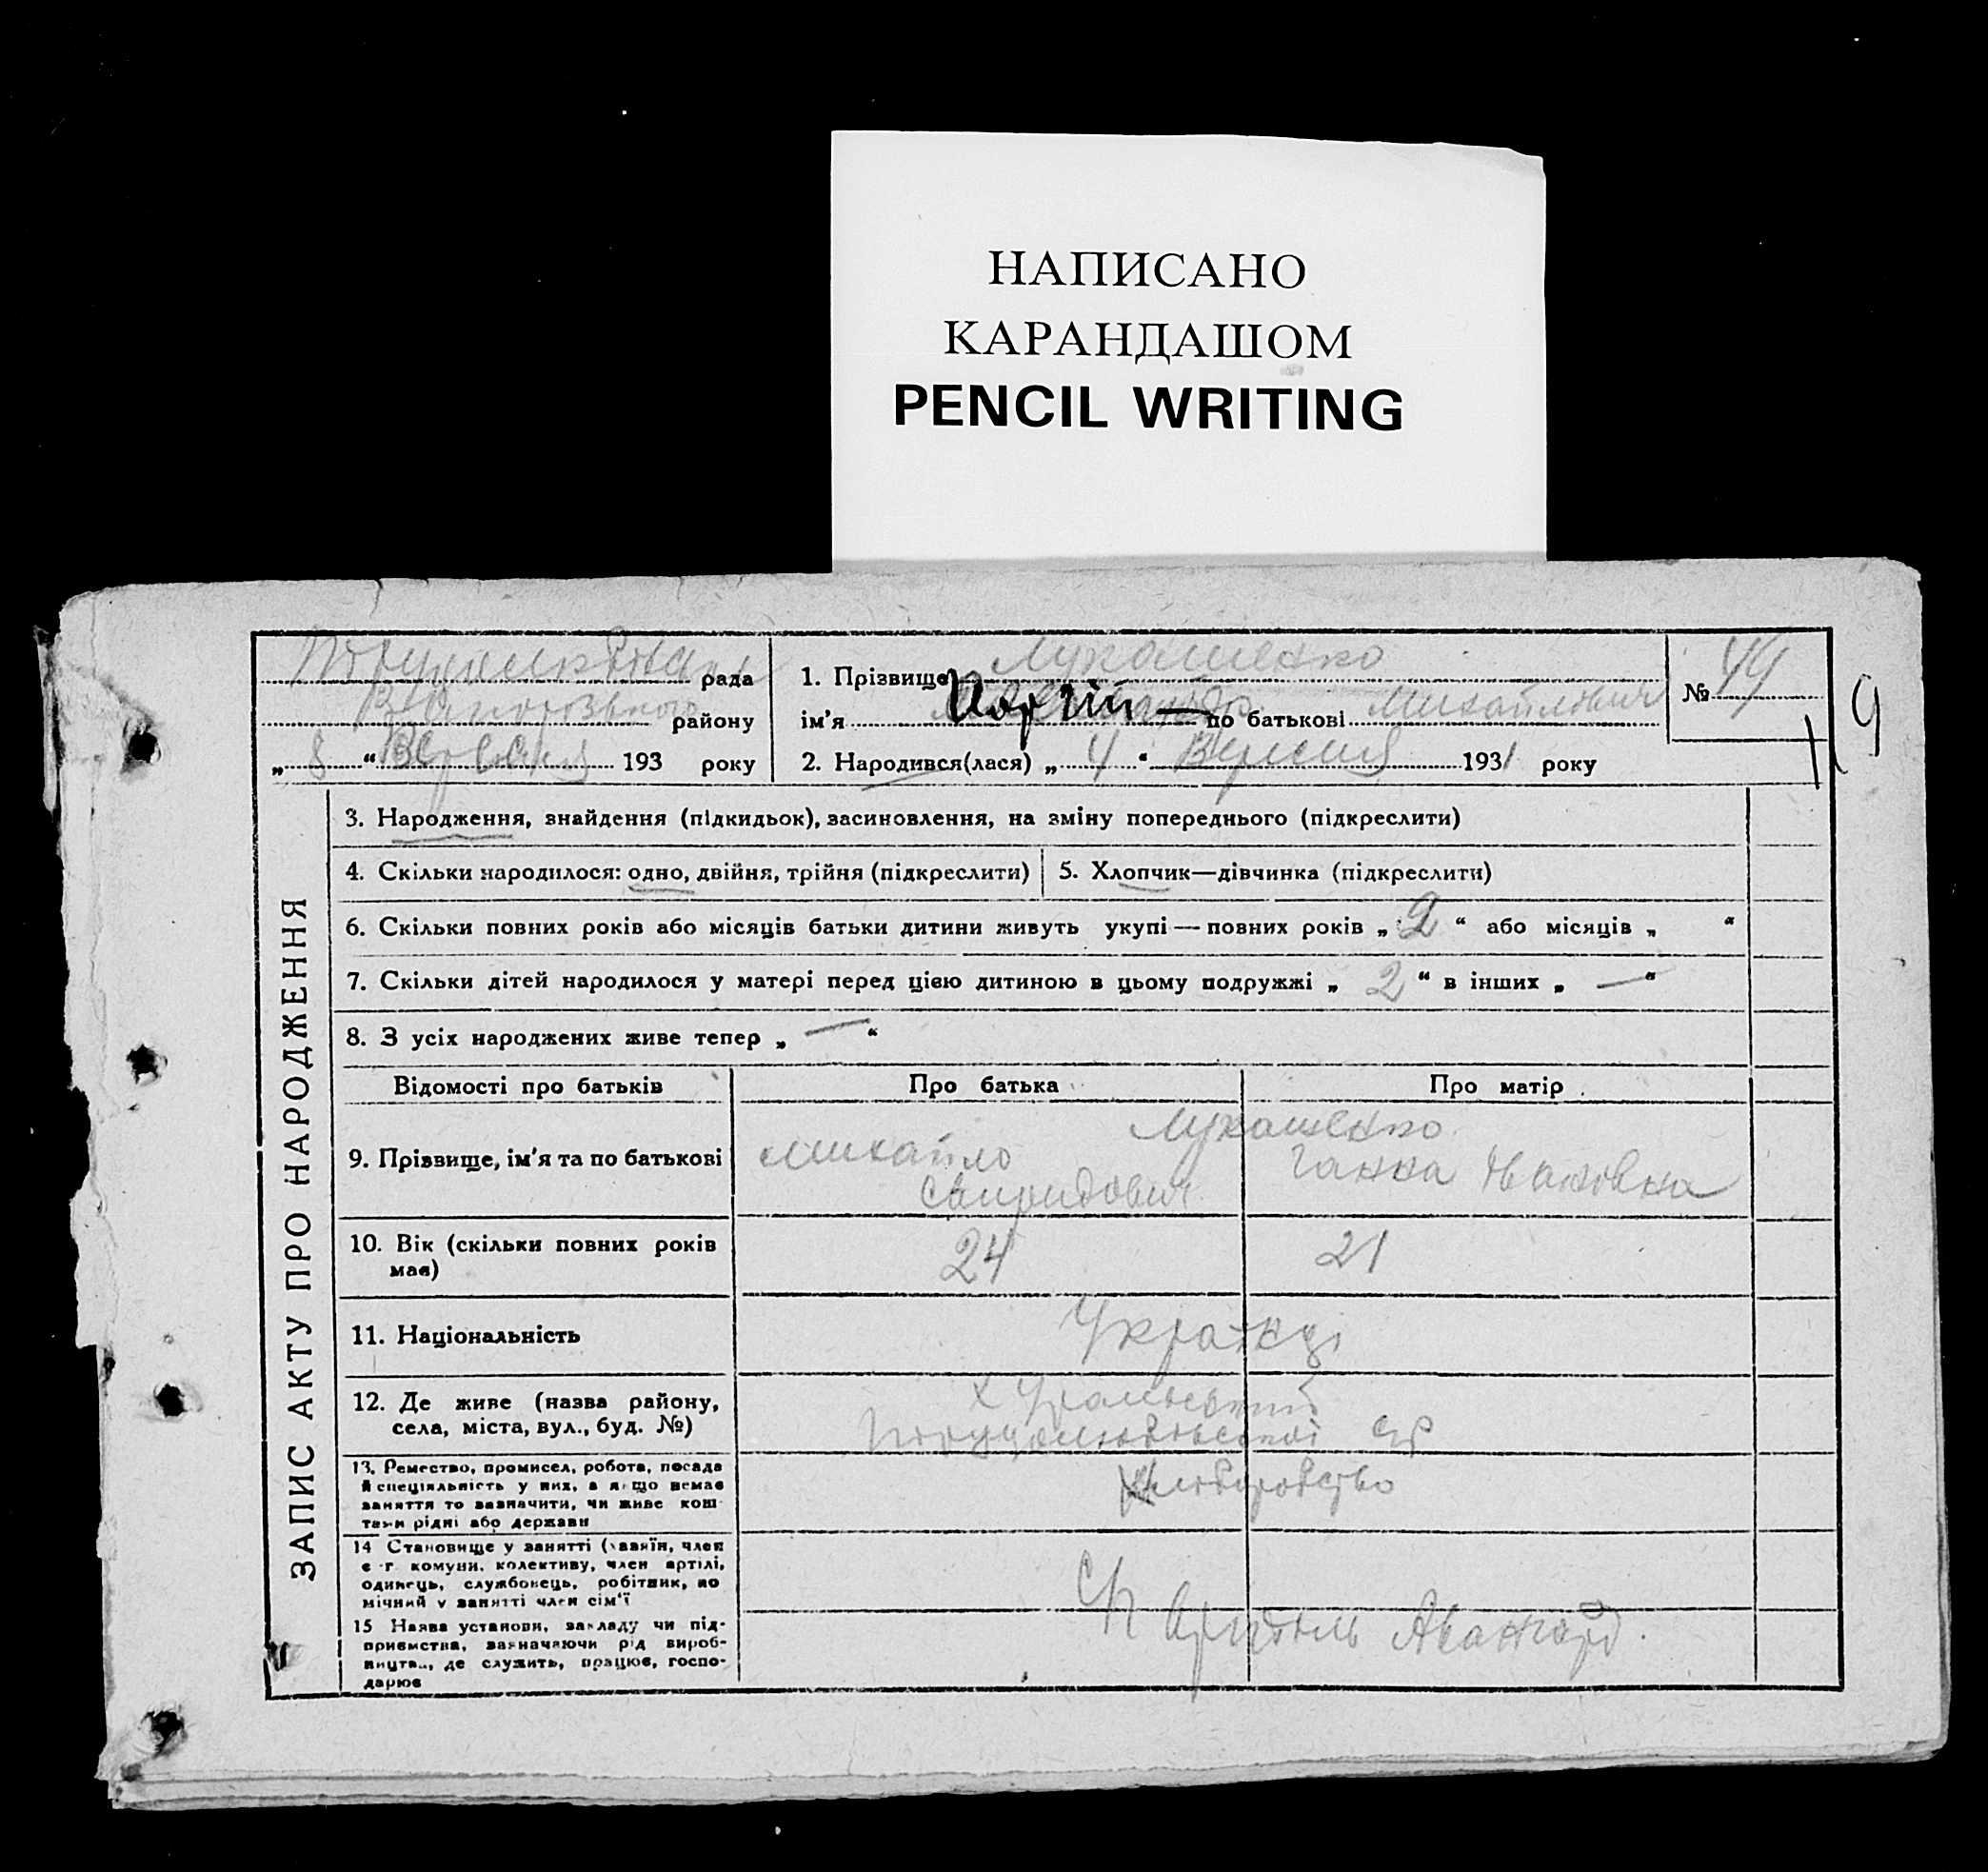 НАПИСАНО
КАРАНДАШОМ
PENCIL WRITING
рада
району
„ 8 “ Вересня 193 року
1. Прізвище Лукашенко
ім’я по батькові Михайлович
2. Народився(лася) „ 4 “ Вересня 1931 року
№ 49
9
ЗАПИС АКТУ ПРО НАРОДЖЕННЯ
3. Народження, знайдення (підкидьок), засиновлення, на зміну попереднього (підкреслити)
4. Скільки народилося: одно, двійня, трійня (підкреслити)
5. Хлопчик—дівчинка (підкреслити)
6. Скільки повних років або місяців батьки дитини живуть укупі — повних років „ 2 “ або місяців „ “
7. Скільки дітей народилося у матері перед цією дитиною в цьому подружжі „ 2 “ в інших „ — “
8. З усіх народжених живе тепер „ — “
Відомості про батьків
Про батька
Про матір
9. Прізвище, ім’я та по батькові
Лукашенко
Михайло
Свиридович
Ганна Івановна
10. Вік (скільки повних років
має)
24
21
11. Національність
Українці
12. Де живе (назва району,
села, міста, вул., буд. №)
13. Ремество, промисел, робота, посада
й спеціяльність у них, а якщо немає
заняття то зазначити, чи живе кош-
тами рідні або держави
хліборобство
14 Становище у занятті (хазяїн, член
с.-г. комуни, колективу, член артілі,
одинець, службовець, робітник, по
мічний у занятті член сім’ї
15 Назва установи, закладу чи під-
приємства, зазначаючи рід вироб-
ництва, де служить, працює, госпо-
дарює
Авангард